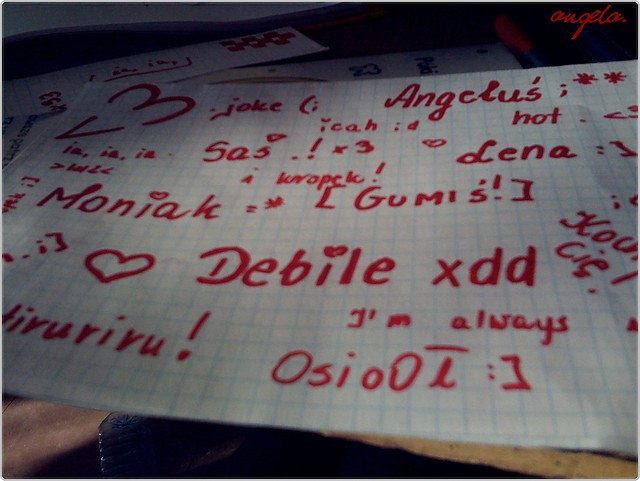 angela.
ia, ia,
<3 .joke (; Angeluś ; **
icah :d hot . <3
ia, ia, ia Saś .! x3 Lena :]
i kropek!
Moniak =* [Gumiś!]
Debile xdd
Cię.
I'm always
OsioOł :]